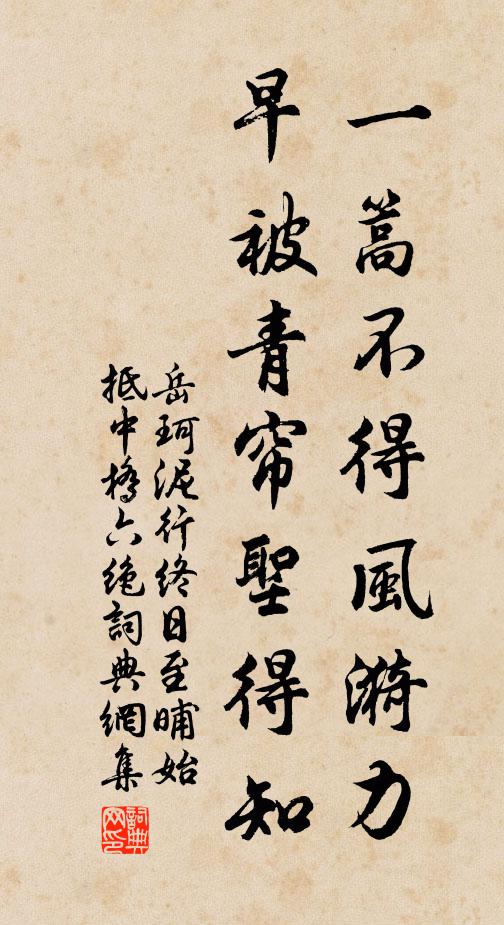 一篙不得風漪力
早被青帘聖得知
岳珂泥行終日至晡始
抵中橋六绝詞典網集
詞典
网印